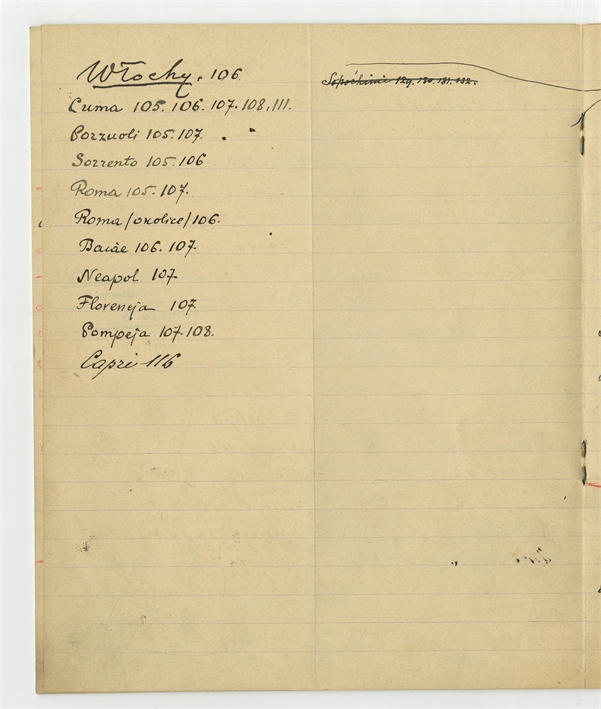 Włochy. 106.
Cuma 105. 106. 107. 108. 111.
Pozzuoli 105. 107.
Sorrento 105. 106
Roma 105. 107.
Roma /okolice/ 106.
Baiae 106. 107.
Neapol 107.
Florencja 107.
Pompeja 107. 108.
Capri 116
Sopoćkinie 129. 130. 131. 132.